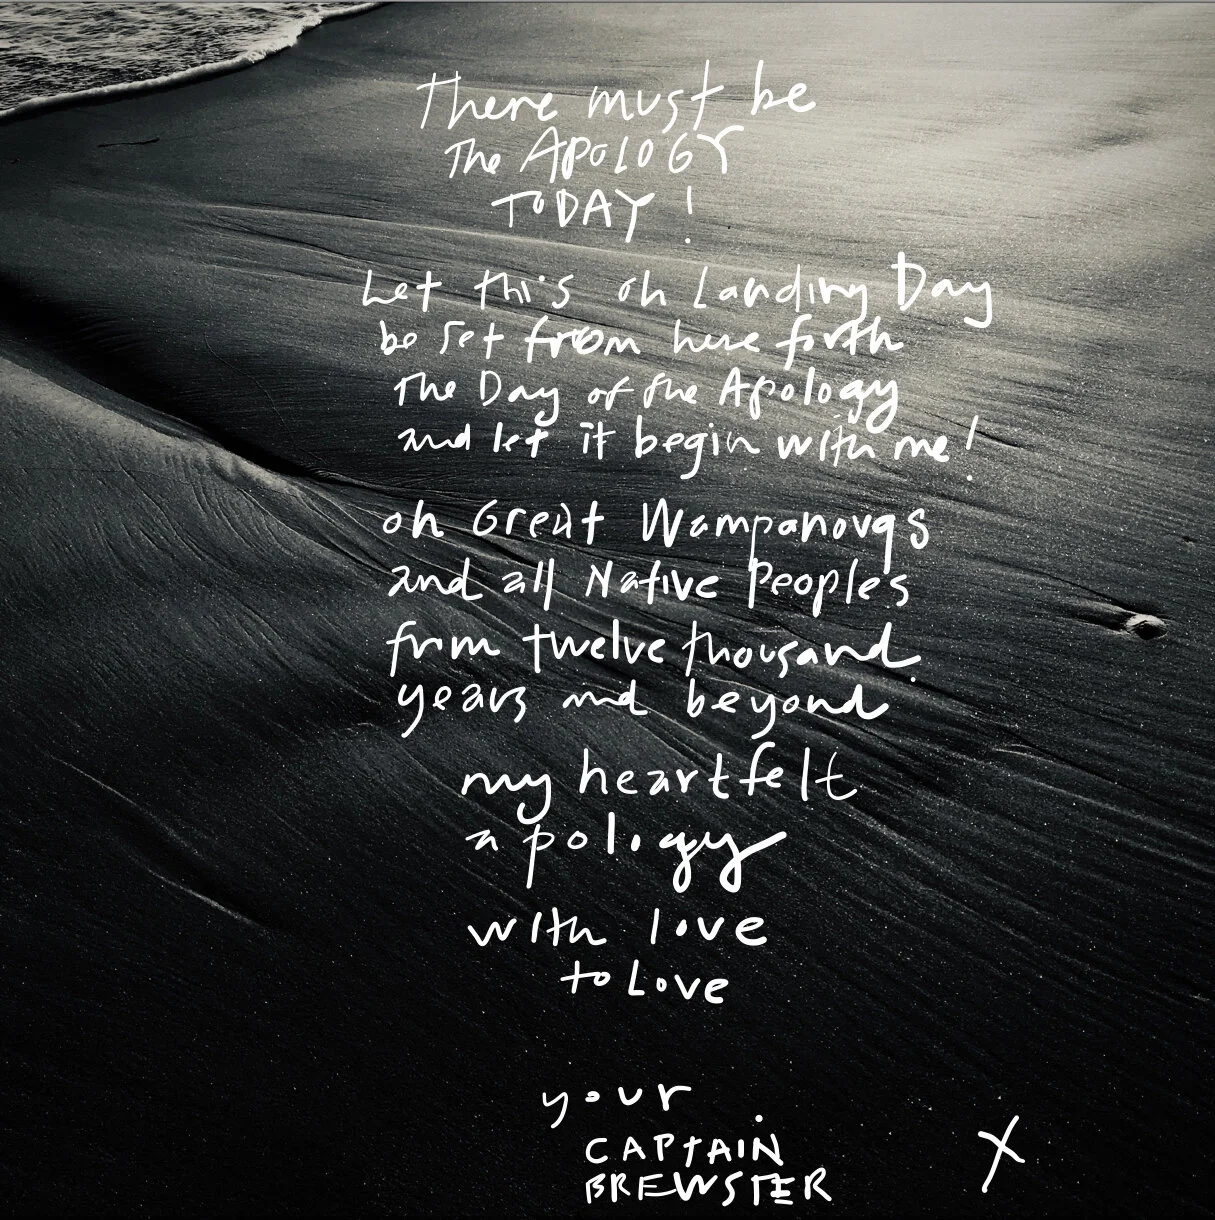 There must be
The APOLOGY
TODAY!
Let this oh Landing Day
be set from here forth
The Day of the Apology
and let it begin with me!
oh Great Wampanoags
and all Native Peoples
from twelve thousand
years and beyond
my heartfelt
apology
with love
to Love
your
CAPTAIN
BREWSTER
X